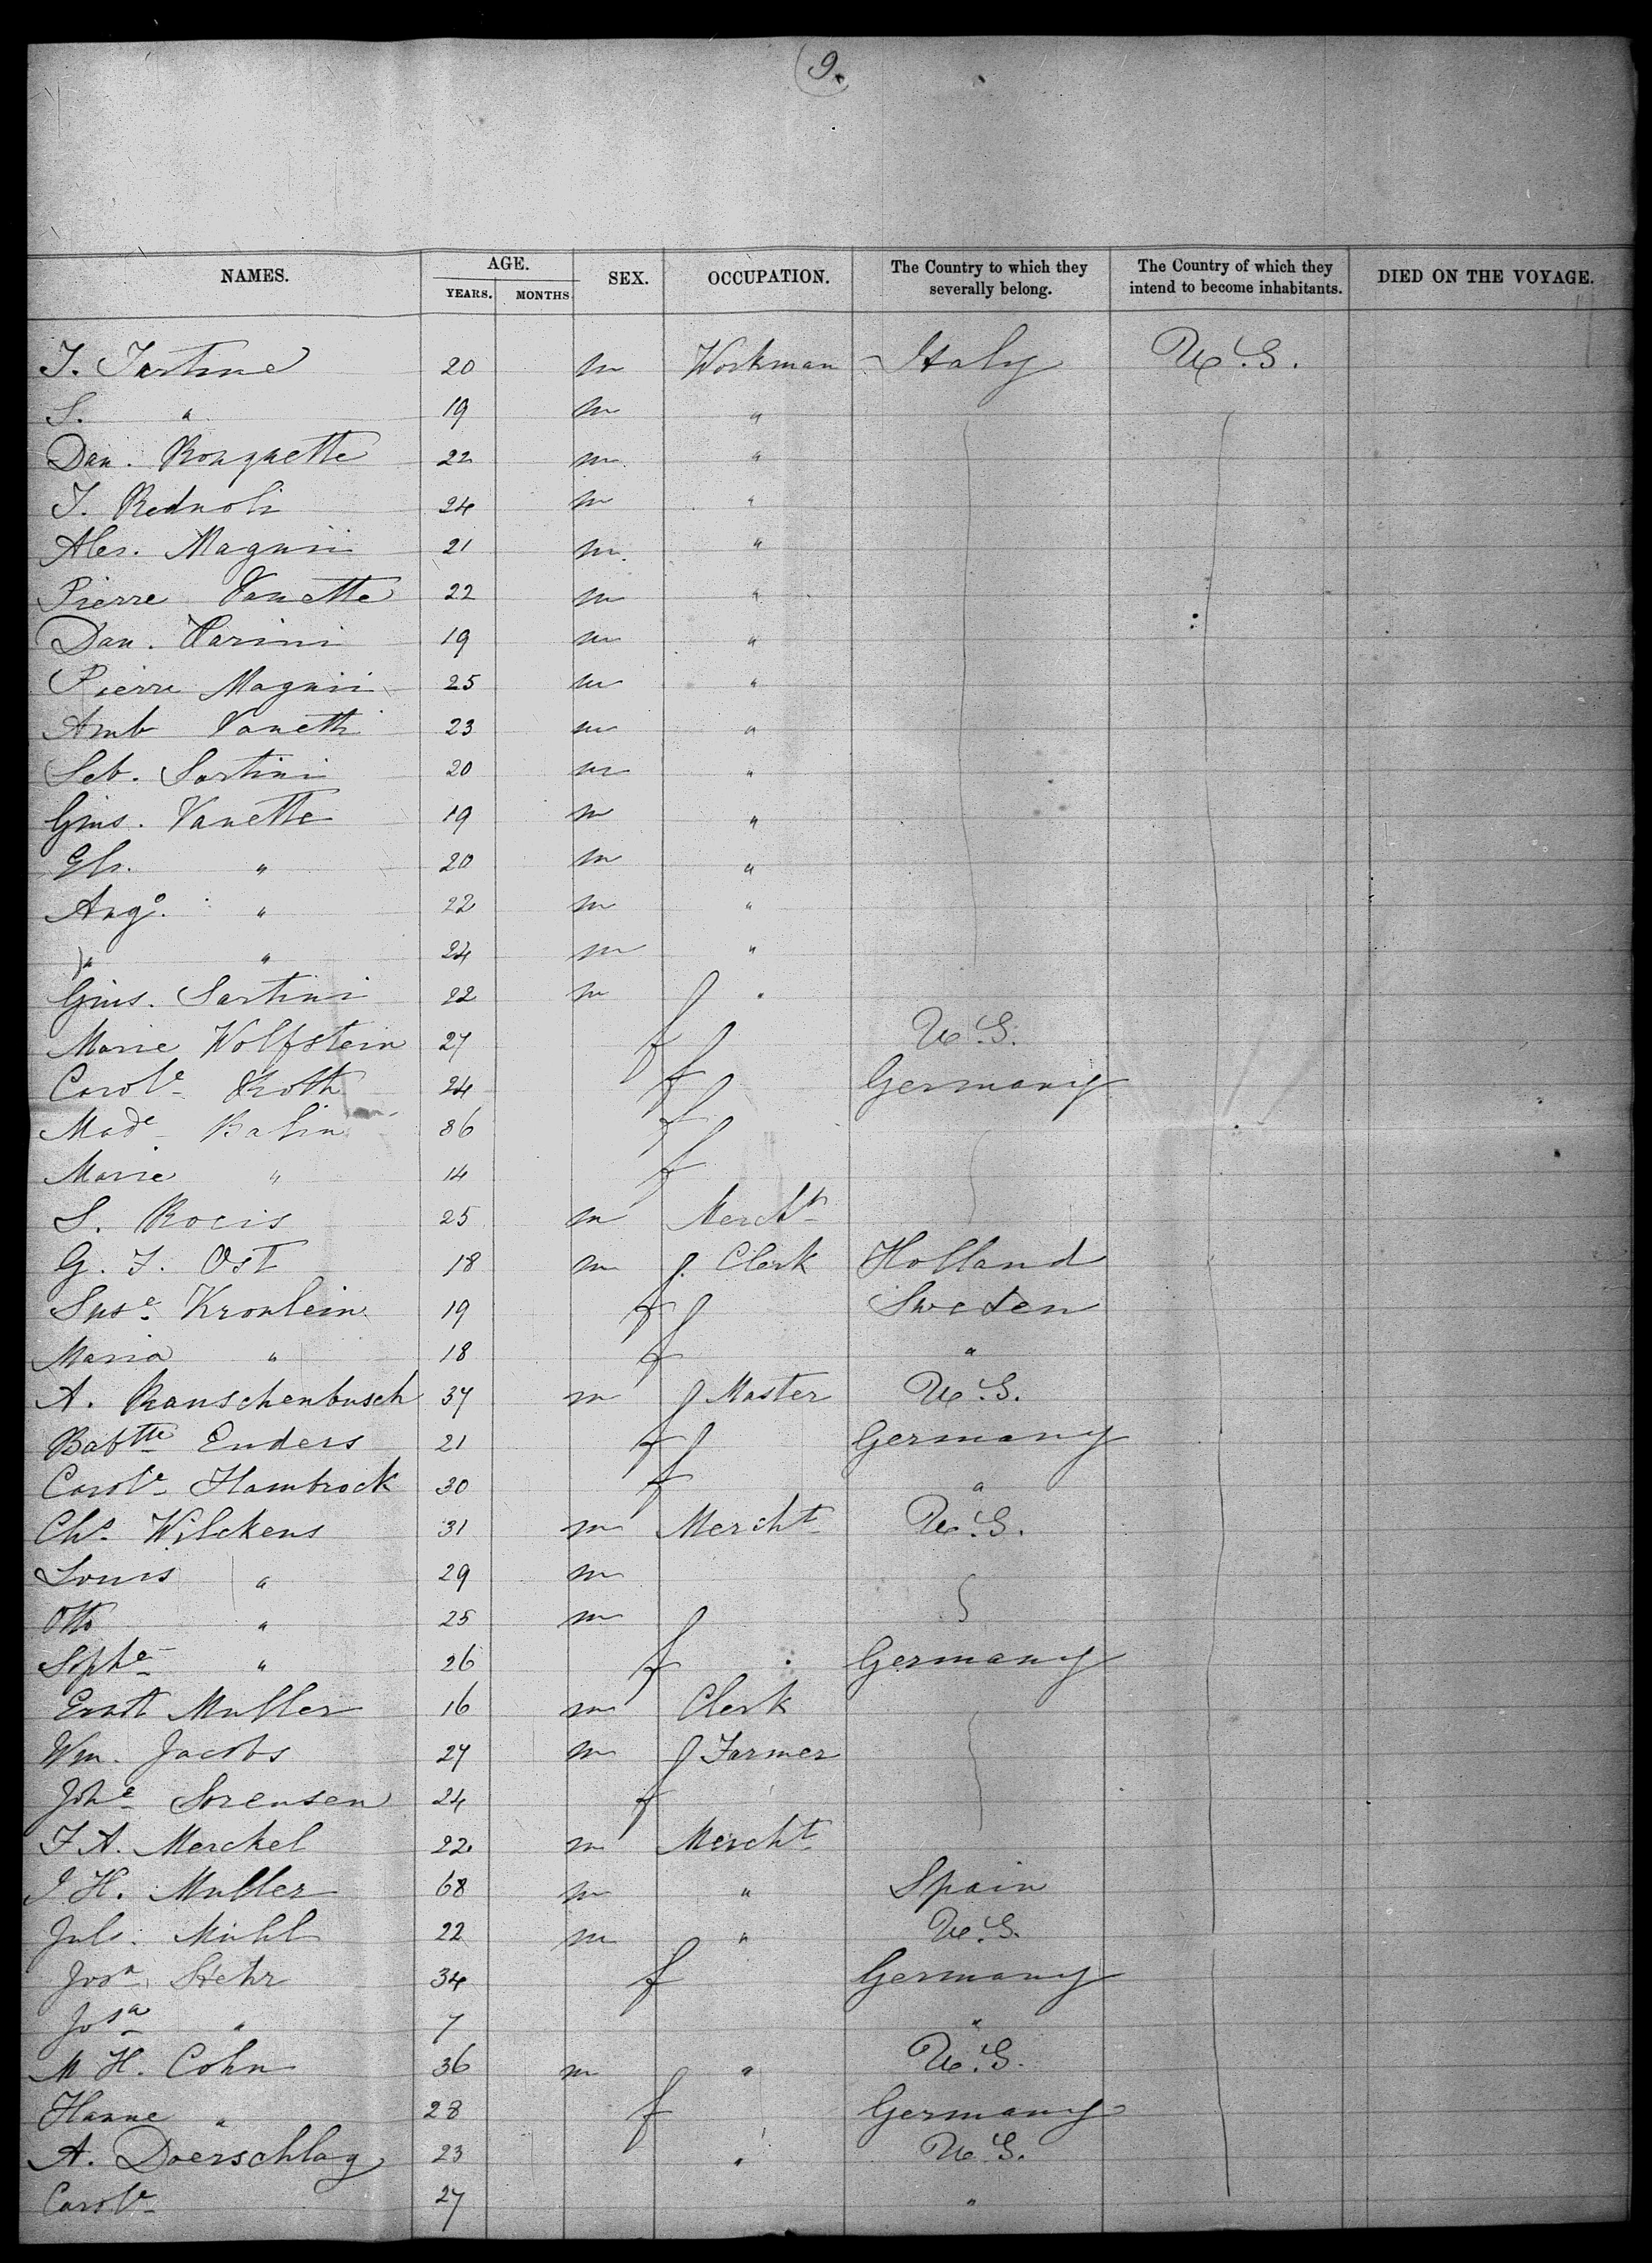 9.
NAMES. AGE. SEX. OCCUPATION. The Country to which they severally belong. The Country of which they intend to become inhabitants. DIED ON THE VOYAGE.
YEARS. MONTHS.
20 m Workman Italy U.S.
S. " 19 m "
Dan. Ronquette 22 m "
24 m "
Ales. Magnini 21 m "
Pierre Vanette 22 m "
Dan. Varini 19 m "
Pierre Magnii 25 m "
Amb Vanetti 23 m "
Seb. Sartini 20 m "
Gius. Vanette 19 m "
" 20 m "
Ango. " 22 m "
" " 24 m "
Gius. Sartini 22 m "
Marie Wolfstein 27 f U.S.
Carole Roth 24 f Germany
Made Balin 36 f
Marie " 14 f
S. Rocis 25 m Mercht
G. F. Ost 18 m Clerk Holland
Suse Kronlein 19 f Sweden
Maria " 18 f "
A. Rauschenbusch 37 m Master U.S.
Babtte Enders 21 f Germany
Carole Hambrock 30 f "
Chs. Wilckens 31 m Mercht U.S.
Louis " 29 m
Otto " 25 m
Sophe " 26 f Germany
Ernst Muller 16 m Clerk
Wm. Jacobs 27 m Farmer
Johe Sorensen 24 f
F. A. Merckel 22 m Mercht
J. H. Muller 68 m " Spain
Jul. Muhl 22 m " U.S.
Josa Stehr 34 f Germany
Josa " 7 "
M. H. Cohn 36 m " U.S.
Hanne " 28 f Germany
A. Doerschlag 23 " U.S.
Carole 27 "